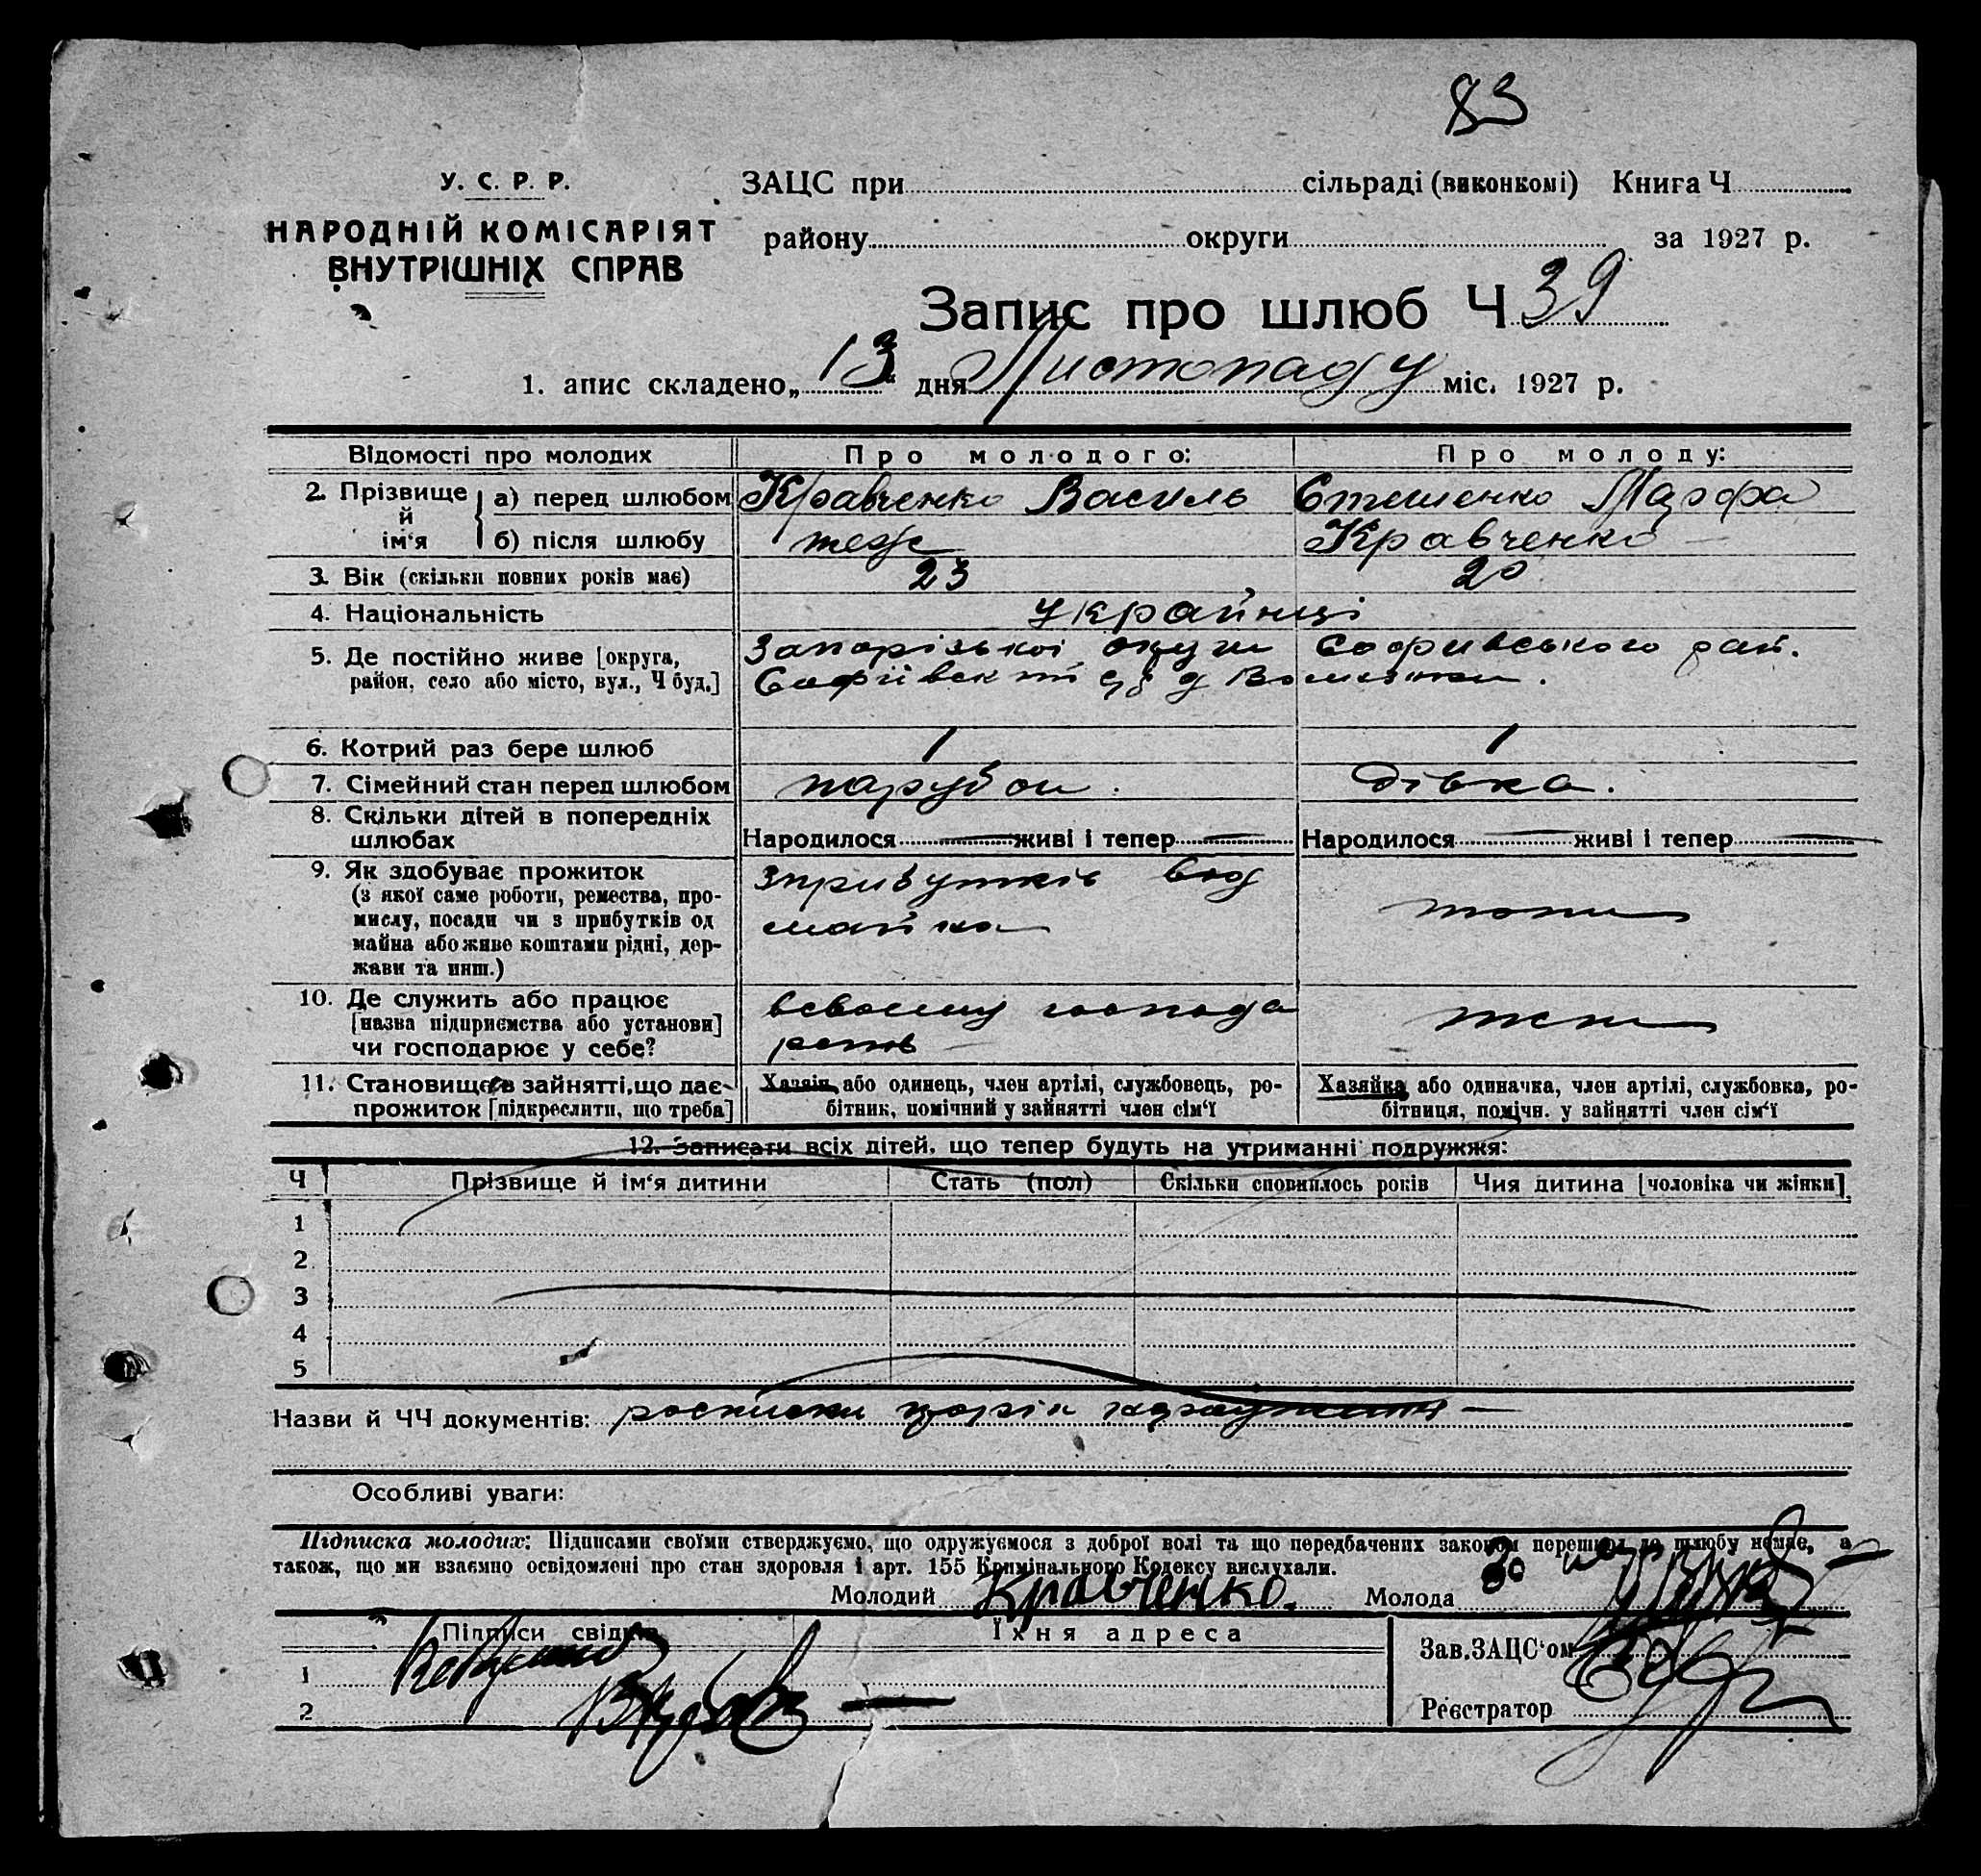 83
У. С. Р. Р.
НАРОДНІЙ КОМІСАРІЯТ
ВНУТРІШНІХ СПРАВ
ЗАЦС при сільраді (виконкомі) Книга Ч
району округи за 1927 р.
Запис про шлюб Ч 39
1. апис складено „13“ дня Листопаду міс. 1927 р.
Відомості про молодих Про молодого: Про молоду:
2. Прізвище й ім‘я а) перед шлюбом Кравченко Василь Стешенко Марфа
б) після шлюбу теж Кравченко
3. Вік (скільки повних років має) 23 20
4. Національність Українці
5. Де постійно живе [округа, район, село або місто, вул., Ч буд.] Запорізької округи Софиівського рай.
Софіївск
6. Котрий раз бере шлюб 1 1
7. Сімейний стан перед шлюбом парубок. дівка.
8. Скільки дітей в попередніх шлюбах Народилося — живі і тепер — Народилося — живі і тепер —
9. Як здобуває прожиток
(з якої саме роботи, ремества, про-
мислу, посади чи з прибутків од
майна або живе коштами рідні, дер-
жави та инш.)
зприбутків від
майна
10. Де служить або працює
[назва підприємства або установи]
чи господарює у себе?
всвоєму господа
рстві
11. Становище в зайнятті, що дає
прожиток [підкреслити, що треба]
Хазяїн або одинець, член артілі, службовець, ро-
бітник, помічний у зайнятті член сім‘ї
Хазяйка або одиначка, член артілі, службовка, ро-
бітниця, помічн. у зайнятті член сім‘ї
12. Записати всіх дітей, що тепер будуть на утриманні подружжя:
Ч Прізвище й ім‘я дитини Стать (пол) Скільки сповнилось років Чия дитина [чоловіка чи жінки]
1
2
3
4
5
Назви й ЧЧ документів: росписки
Особливі уваги:
Підписка молодих: Підписами своїми стверджуємо, що одружуємося з доброї волі та що передбачених законом перешкод до шлюбу немає, а
також, що ми взаємно освідомлені про стан здоровля і арт. 155 Кримінального Кодексу вислухали.
Молодий Кравченко. Молода
Підписи свідків Їхня адреса
Зав. ЗАЦС‘ом
1
2
Реєстратор